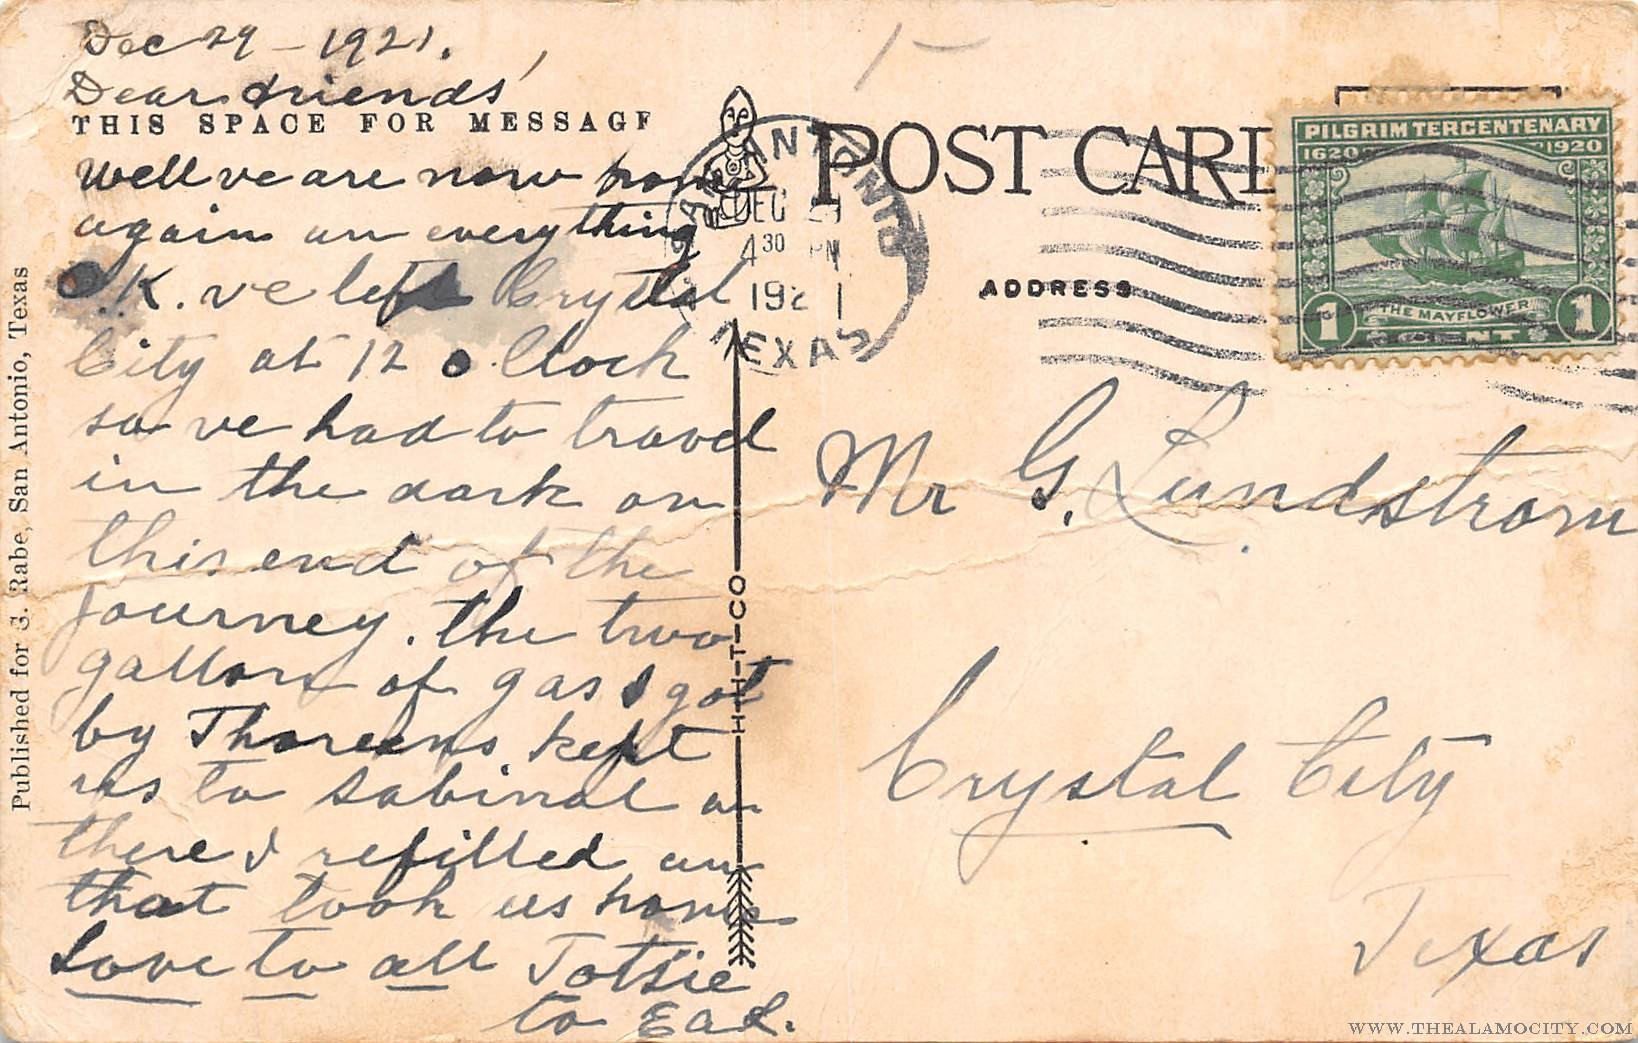 Dec 29 - 1921.
Dear friends,
THIS SPACE FOR MESSAGE
Well ve are now home
again an everything
O.K. ve left Crystal
City at 12 o Clock
so ve had to travel
in the dark on
this end of the
journey. the two
gallons of gas I got
by Thoreens kept
us to Sabinal an
there I refilled an
that took us home
Love to all Totsie
to
Published for S. Rabe, San Antonio, Texas
H-H-T-CO
SAN ANTONIO
DEC 29
4 30 PM
1921
TEXAS
POST CARD
ADDRESS
PILGRIM TERCENTENARY
1620 1920
THE MAYFLOWER
1 CENT 1
Mr G. Lundstrom
Crystal City
Texas
WWW.THEALAMOCITY.COM